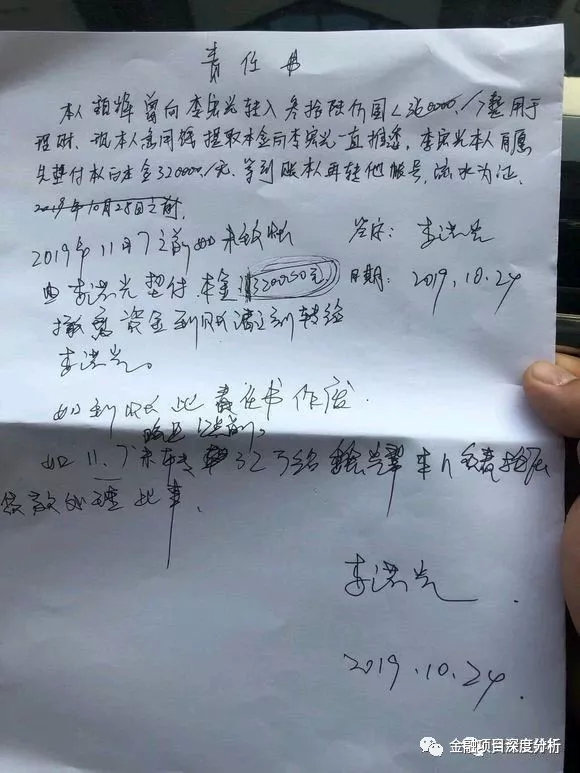 责任书
本人 曾向李宏光转入叁拾陆万圆(360000./)整用于
理财.现本人急用钱提取本金向李宏光一直推落,李宏光本人自愿
先垫付本人的本金320000./元.等到账本人再转他账号,流水为证.
2019年10月28日之前,
2019年11月7之前如未到账 签字:李洪光
由李洪光垫付.本金 320000元 日期:2019.10.24
资金到账 转给
李洪光。
如到账此责任书作废.
如11.7未转 32万给 本人
处理此事.
李洪光
2019.10.24
金融项目深度分析